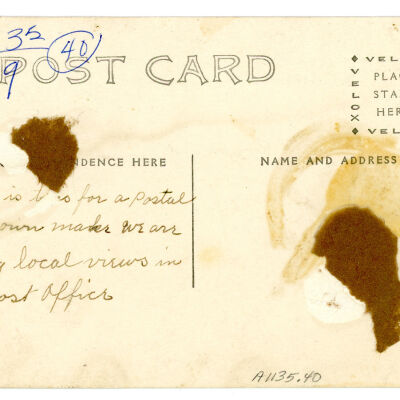 35
40
9
POST CARD
VEL
VELOX
PLA
STA
HER
VEL
NDENCE HERE
NAME AND ADDRESS
is t is for a Postal
own make we are
local views in
ost Office
A1135.40